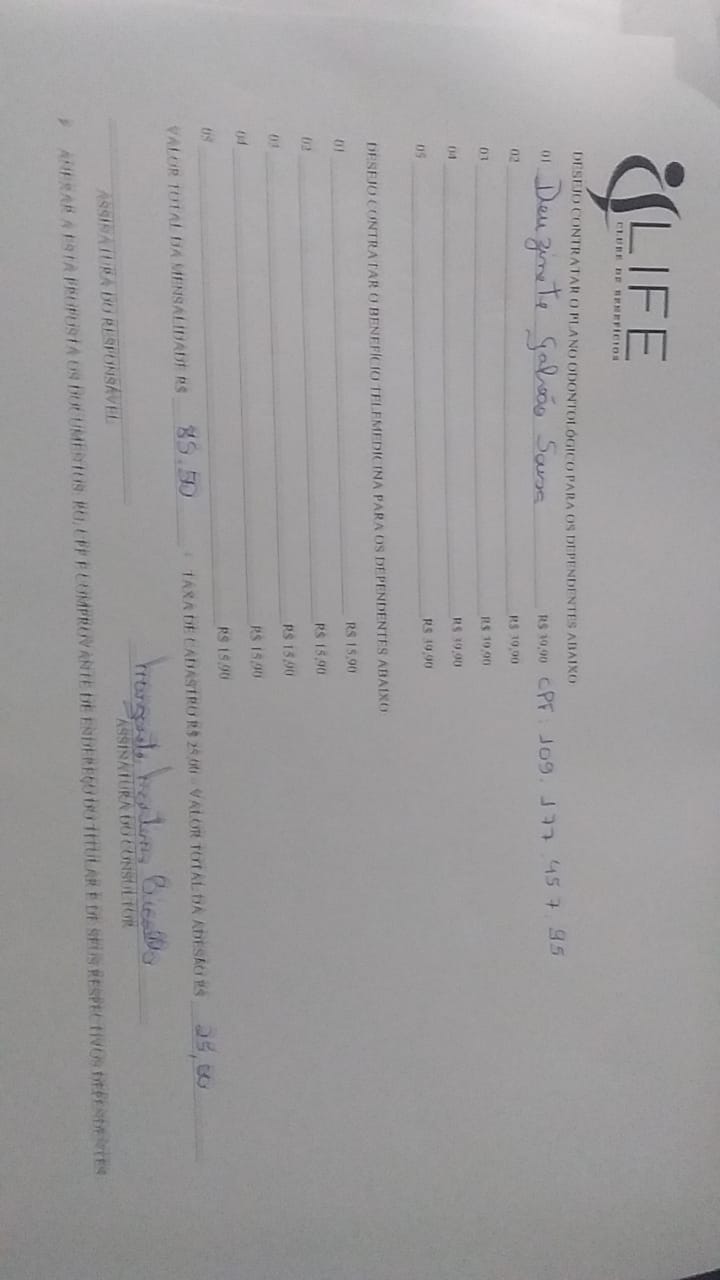 LIFE
CLUBE DE BENEFÍCIOS
DESEJO CONTRATAR O PLANO ODONTOLÓGICO PARA OS DEPENDENTES ABAIXO
01 Deuzinete Galvão Sousa R$ 39,90 CPF: 109.177.457.95
02 R$ 39,90
03 R$ 39,90
04 R$ 39,90
05 R$ 39,90
DESEJO CONTRATAR O BENEFÍCIO TELEMEDICINA PARA OS DEPENDENTES ABAIXO
01 R$ 15,90
02 R$ 15,90
03 R$ 15,90
04 R$ 15,90
05 R$ 15,90
VALOR TOTAL DA MENSALIDADE R$ 89,50 + TAXA DE CADASTRO R$ 25,00 = VALOR TOTAL DA ADESÃO R$ 25,00
ASSINATURA DO RESPONSÁVEL
ASSINATURA DO CONSULTOR
ANEXAR A ESTA PROPOSTA OS DOCUMENTOS: RG, CPF E COMPROVANTE DE ENDEREÇO DO TITULAR E DE SEUS RESPECTIVOS DEPENDENTES